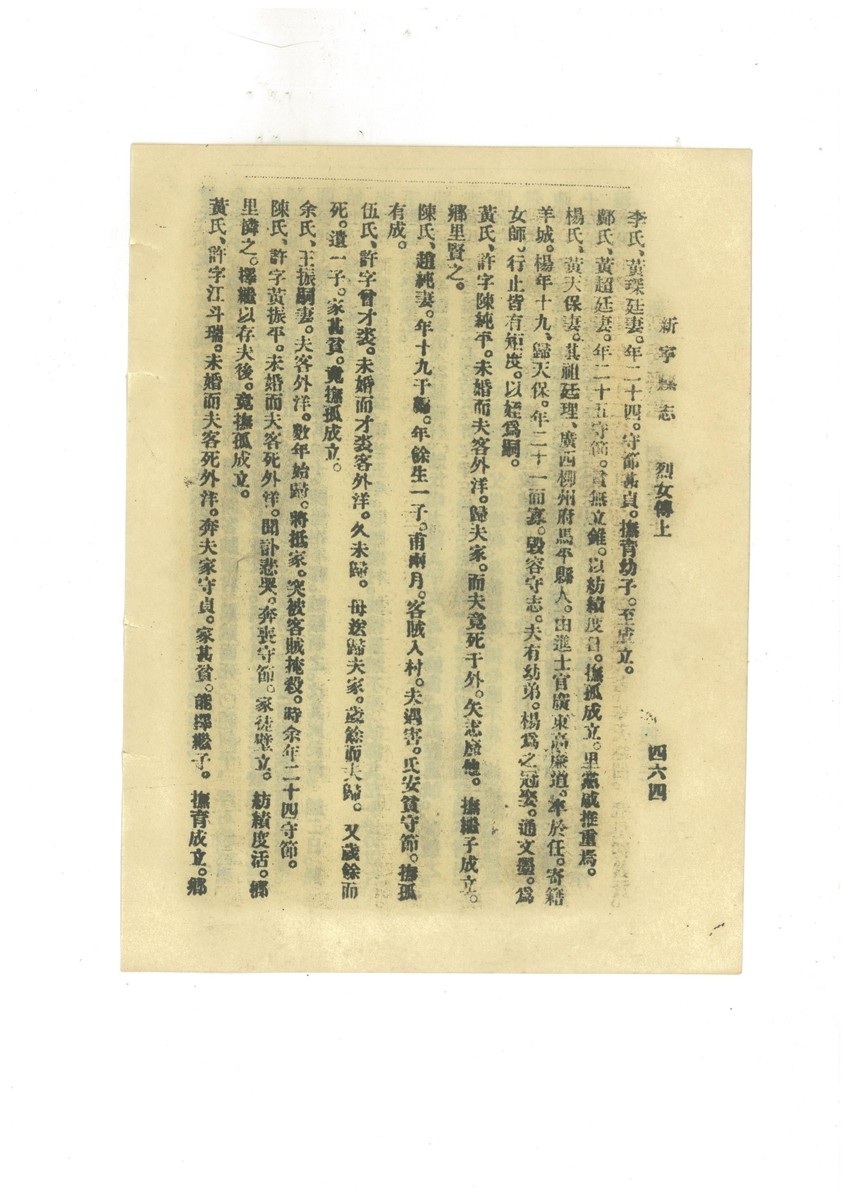 新寧縣志 烈女傳上 四六四
李氏、黃琛廷妻。年二十四。守節甚貞。撫育幼子。至成立。
鄺氏、黃超廷妻。年二十五守節。貧無立錐。以紡績度日。撫孤成立。里黨戚推重焉。
楊氏、黃天保妻。其祖廷理、廣西柳州府馬平縣人。由進士官廣東高廉道。卒於任。寄籍
羊城。楊年十九、歸天保。年二十一而寡。毀容守志。夫有幼弟。楊為之冠娶。通文墨。為
女師、行止皆有矩度。以姪為嗣。
黃氏、許字陳純平。未婚而夫客外洋。歸夫家。而夫竟死于外。矢志靡他。撫繼子成立。
鄉里賢之。
陳氏、趙純妻。年十九于歸。年餘生一子。甫兩月。客賊入村。夫遇害。氏安貧守節。撫孤
有成。
伍氏、許字曾才裘。未婚而才裘客外洋。久未歸。母送歸夫家。歲餘而夫歸。又歲餘而
死。遺一子。家甚貧。竟撫孤成立。
余氏、王振嗣妻。夫客外洋。數年始歸。將抵家。突被客賊掩殺。時余年二十四守節。
陳氏、許字黃振平。未婚而夫客死外洋。聞訃悲哭。奔喪守節。家徒壁立。紡績度活。鄉
里憐之。擇繼以存夫後。竟撫孤成立。
黃氏、許字江斗瑞。未婚而夫客死外洋。奔夫家守貞。家甚貧。能擇繼子。撫育成立。鄉